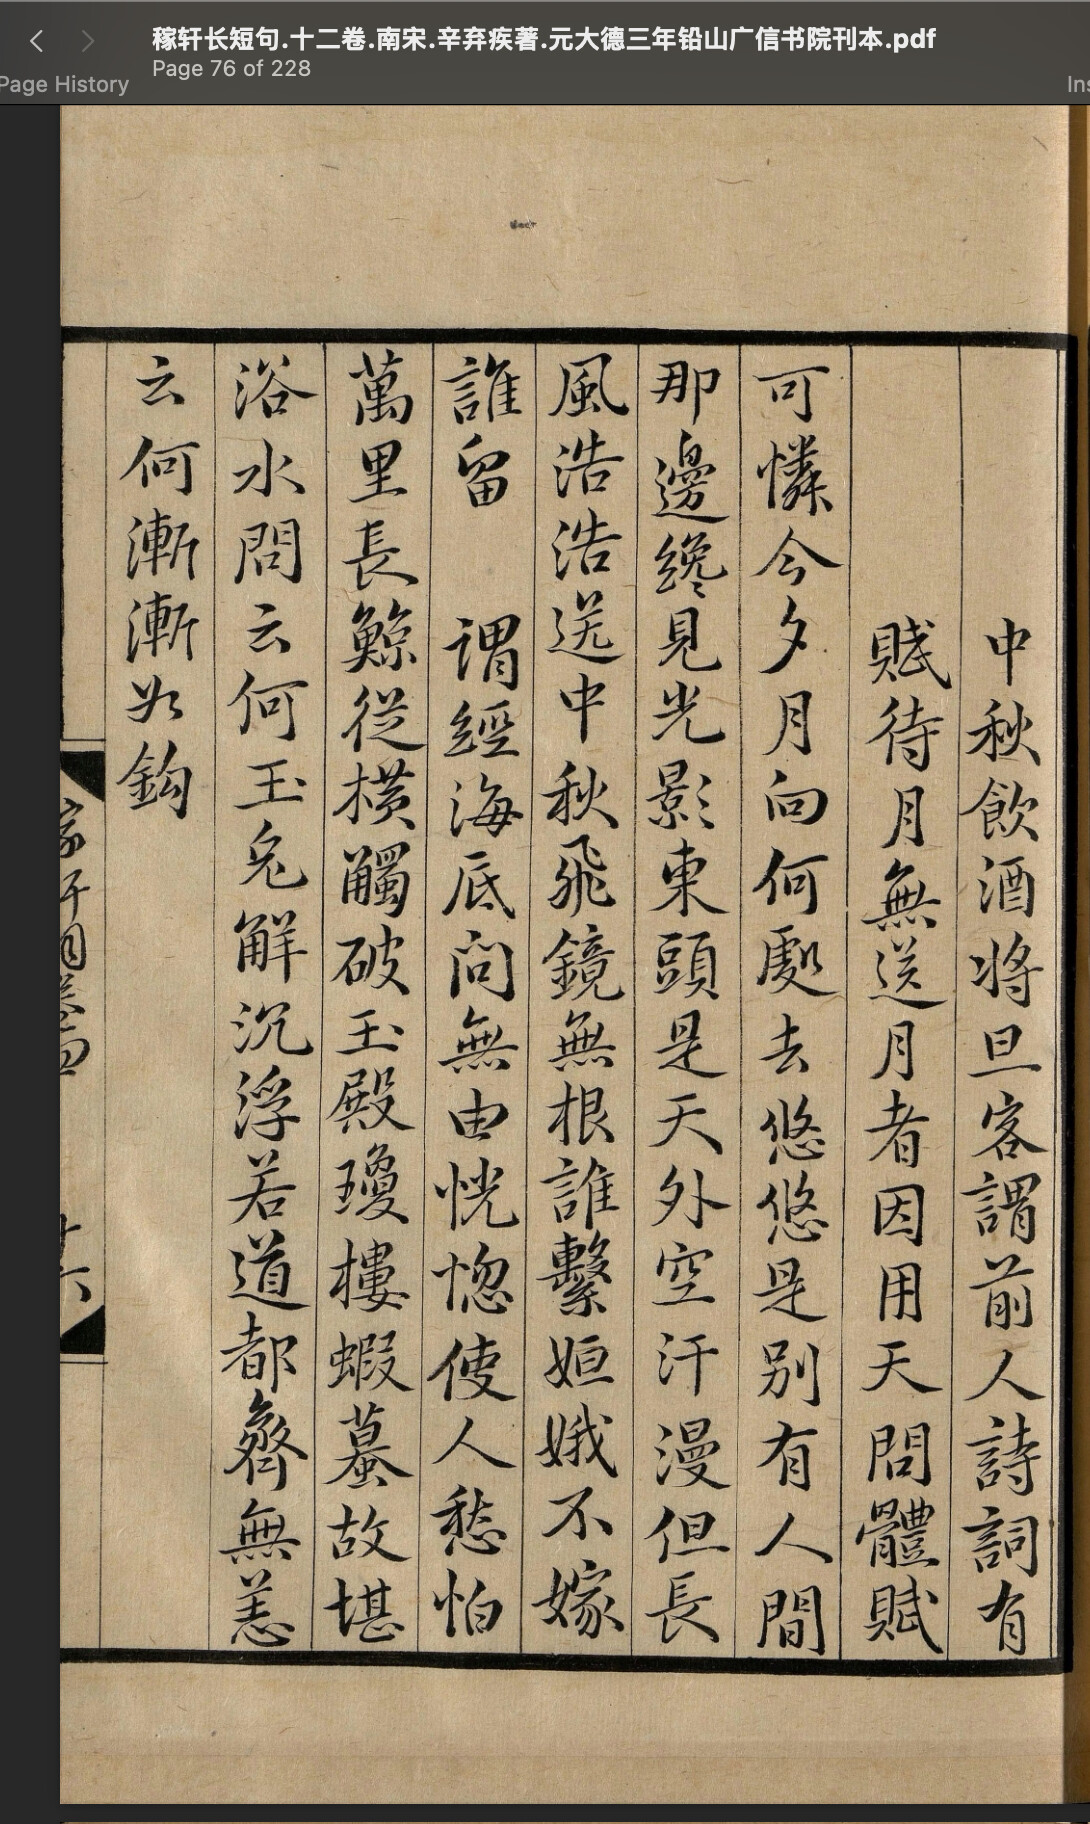 稼轩长短句.十二卷.南宋.辛弃疾著.元大德三年铅山广信书院刊本.pdf
Page 76 of 228
Page History
Ins
中秋飲酒将旦客謂前人詩詞有
賦待月無送月者因用天問體賦
可憐今夕月向何處去悠悠是別有人間
那邊纔見光影東頭是天外空汗漫但長
風浩浩送中秋飛鏡無根誰繫姮娥不嫁
誰留 謂經海底問無由恍惚使人愁怕
萬里長鯨從橫觸破玉殿瓊樓蝦蟇故堪
浴水問云何玉兔解沉浮若道都齊無恙
云何漸漸如鈎